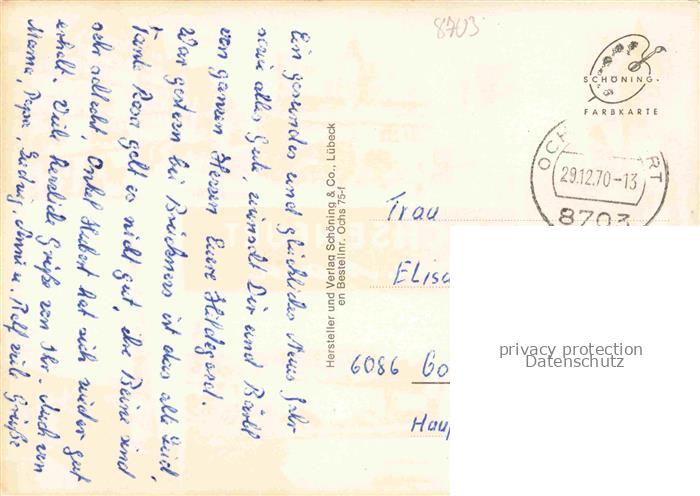 8703
SCHÖNING-
FARBKARTE
OCHSENFURT
29.12.70-13
8703
Ein gesundes und glückliches Neues Jahr
sowie alles Gute, wünscht Dir und Bärbl
von ganzem Herzen Euere Hildegard.
War gestern bei Brückners ist das alte Lied,
Tante Rosa geht es nicht gut, ihre Beine sind
sehr schlecht, Onkel Hubert hat sich wieder gut
erholt. Viele herzliche Grüße von Ihr. Auch von
Mama, Papa, Ludwig, Anni u. Ralf viele Grüße
Hersteller und Verlag Schöning & Co., Lübeck
en Bestellnr. Ochs 75-f
Frau
Elisa
6086
Haup
privacy protection
Datenschutz